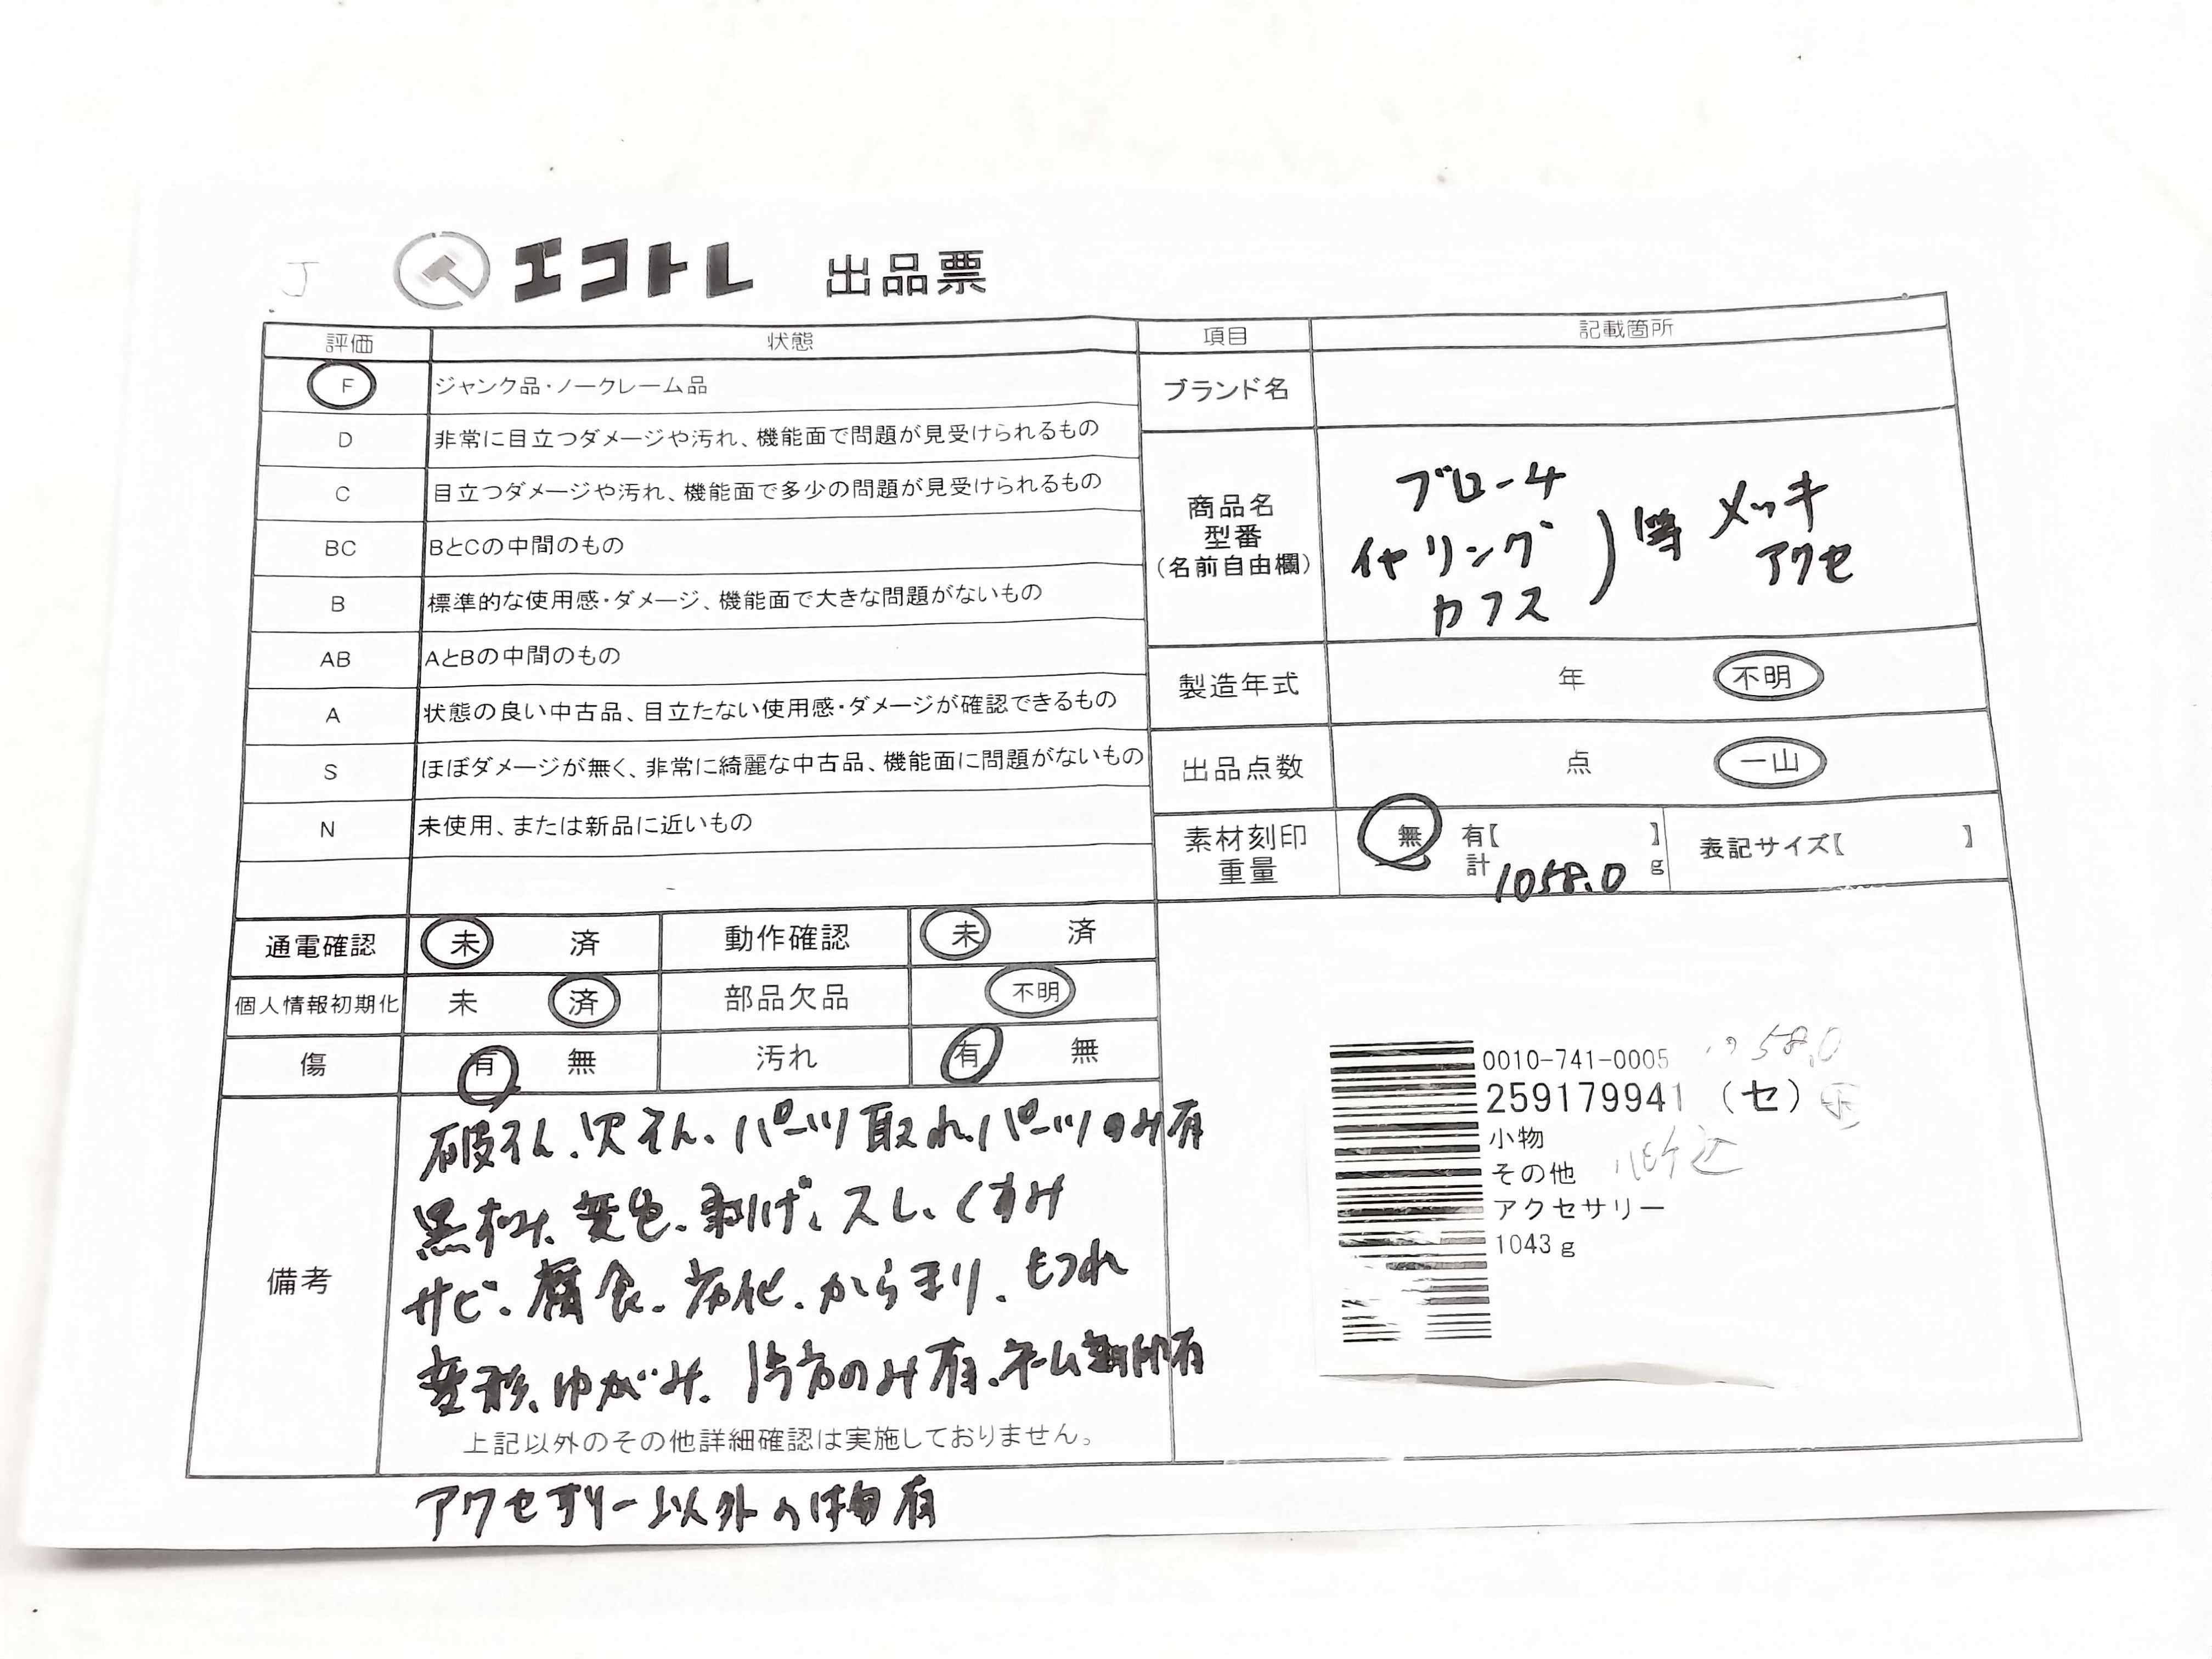 J エコトレ 出品票
評価 状態
F ジャンク品・ノークレーム品
D 非常に目立つダメージや汚れ、機能面で問題が見受けられるもの
C 目立つダメージや汚れ、機能面で多少の問題が見受けられるもの
BC BとCの中間のもの
B 標準的な使用感・ダメージ、機能面で大きな問題がないもの
AB AとBの中間のもの
A 状態の良い中古品、目立たない使用感・ダメージが確認できるもの
S ほぼダメージが無く、非常に綺麗な中古品、機能面に問題がないもの
N 未使用、または新品に近いもの
項目 記載箇所
ブランド名
商品名
型番
(名前自由欄)
ブローチ
イヤリング
カフス
) 等 メッキ
アクセ
製造年式 年 不明
出品点数 点 一山
素材刻印
重量
無 有【 】
計 1058.0 g
表記サイズ【 】
通電確認 未 済 動作確認 未 済
個人情報初期化 未 済 部品欠品 不明
傷 有 無 汚れ 有 無
備考
破そん、欠そん、パーツ取れ、パーツのみ有
黒ずみ、変色、剥げ、スレ、くすみ
サビ、腐食、劣化、からまり、もつれ
変形、ゆがみ、片方のみ有、ネーム刻印有
上記以外のその他詳細確認は実施しておりません。
アクセサリー以外の物有
0010-741-0005
259179941 (セ)
小物
その他
アクセサリー
1043g